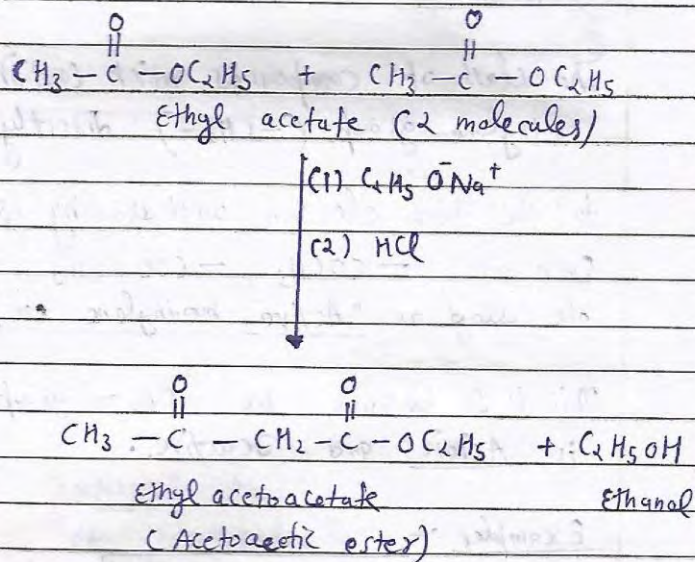 O O
|| ||
CH3 — C — OC2H5 + CH3 — C — OC2H5
Ethyl acetate (2 molecules)
(1) C2H5 ŌNa+
(2) HCl
O O
|| ||
CH3 — C — CH2 — C — OC2H5 + C2H5OH
Ethyl acetoacetate Ethanol
(Acetoacetic ester)